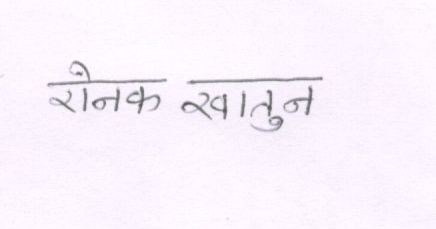 रोनक खातुन